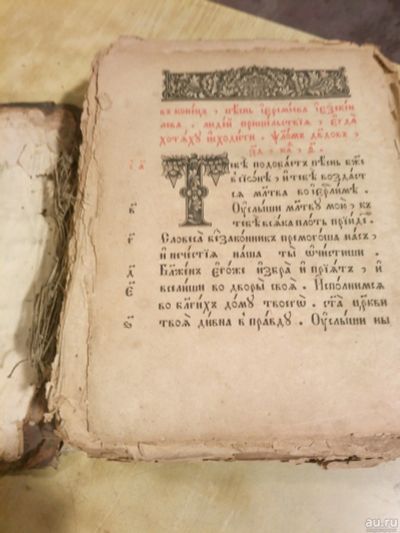 въ конецъ , пѣснь і҆еремїева і҆езекїи
лева . людїи пришельствїѧ , є҆гда̀
хотѧхꙋ и҆сходити . ѱаломъ двдовъ ,
Тебѣ подобаетъ пѣснь бж҃е
в сїѡнѣ , и҆тебѣ воздаст
сѧ мл҃тва во і҆ерл҃имѣ .
Оу҆слыши мл҃твꙋ мою̀ , къ
тебѣ всѧка плоть прїиде .
Словеса̀ беззаконникъ премогоша насъ ,
и҆ нечестїѧ наша ты̀ ѡ҆чистиши .
Блаженъ є҆гоже и҆збра̀ и҆ прїѧтъ , и҆
вселиши во дворы̀ своѧ̀ . И҆сполнимсѧ
во благихъ домꙋ твоегѡ̀ . ст҃а цр҃кви
твоѧ̀ дивна в правдꙋ . Оу҆слыши ны
au.ru